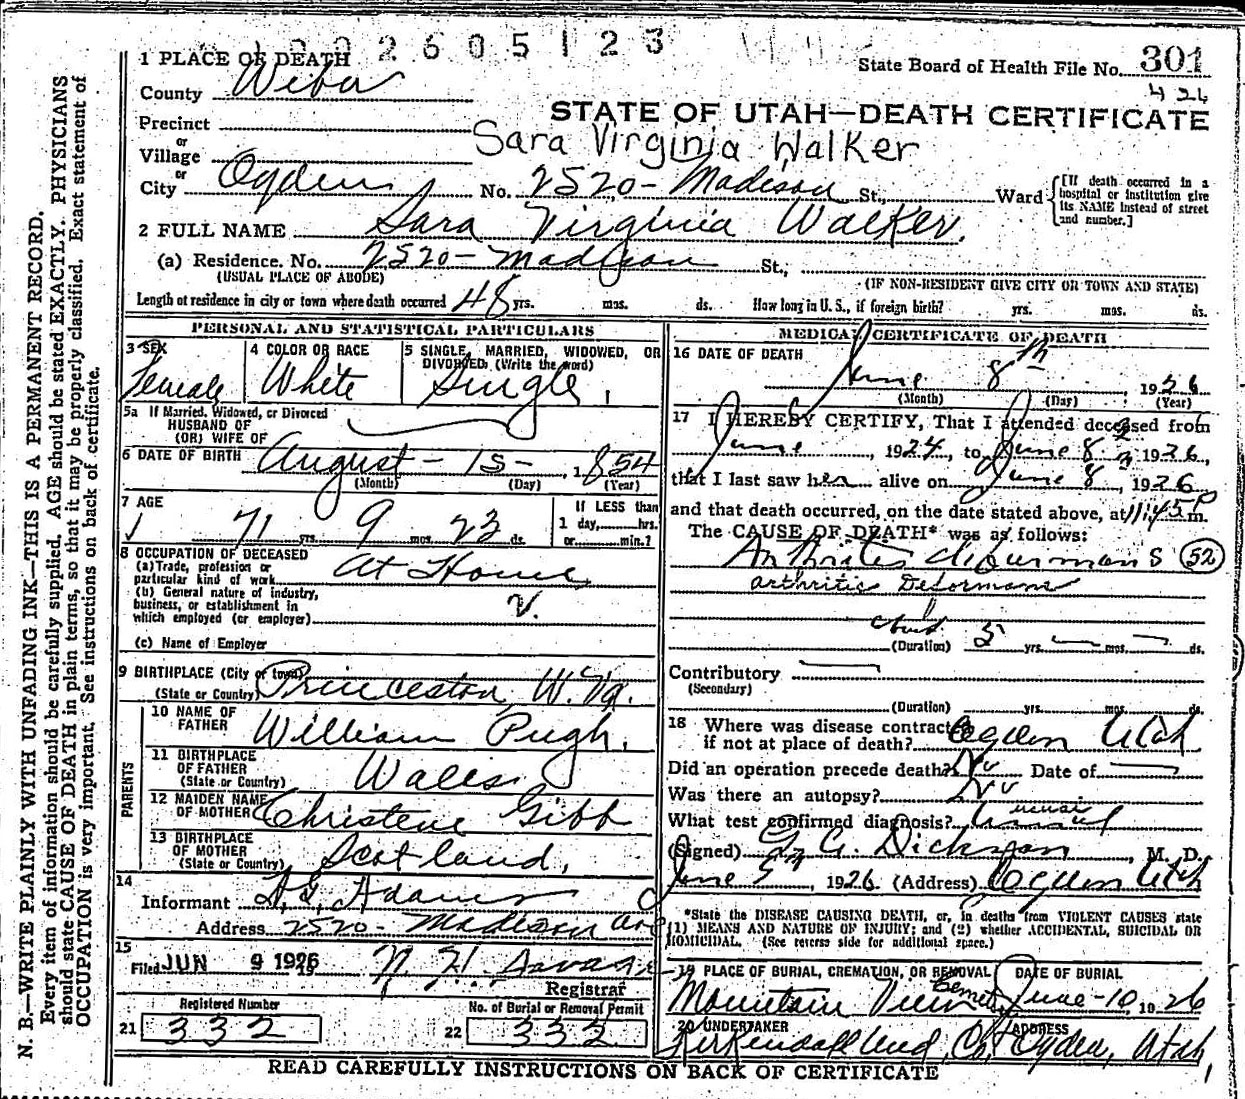 2605123
1 PLACE OF DEATH
State Board of Health File No. 301
424
County Weber
STATE OF UTAH—DEATH CERTIFICATE
Precinct
or
Village
Sara Virginia Walker
or
City Ogden No. 2520- Madison St., Ward [If death occurred in a hospital or institution give its NAME instead of street and number.]
2 FULL NAME Sara Virginia Walker.
(a) Residence. No. 2520- Madison St.,
(USUAL PLACE OF ABODE) (IF NON-RESIDENT GIVE CITY OR TOWN AND STATE)
Length of residence in city or town where death occurred 48 yrs. mos. ds. How long in U. S., if foreign birth? yrs. mos. ds.
PERSONAL AND STATISTICAL PARTICULARS
3 SEX Female
4 COLOR OR RACE White
5 SINGLE, MARRIED, WIDOWED, OR DIVORCED. (Write the word) Single,
5a If Married, Widowed, or Divorced
HUSBAND OF
(OR) WIFE OF
6 DATE OF BIRTH August - 15 - 1854
(Month) (Day) (Year)
7 AGE
71 yrs. 9 mos. 23 ds.
If LESS than
1 day, hrs.
or min.?
8 OCCUPATION OF DECEASED
(a) Trade, profession or
particular kind of work At Home
(b) General nature of industry,
business, or establishment in
which employed (or employer)
(c) Name of Employer
9 BIRTHPLACE (City or town)
(State or Country) Princeston W. Va.
PARENTS
10 NAME OF
FATHER William Pugh.
11 BIRTHPLACE
OF FATHER
(State or Country) Wales
12 MAIDEN NAME
OF MOTHER Christene Gibb
13 BIRTHPLACE
OF MOTHER
(State or Country) Scotland,
14
Informant Adams
Address 2520- Madison Ave
15
Filed JUN 9 1926
Registrar
Registered Number
21 332
No. of Burial or Removal Permit
22 332
MEDICAL CERTIFICATE OF DEATH
16 DATE OF DEATH
June 8th, 1926
(Month) (Day) (Year)
17 I HEREBY CERTIFY, That I attended deceased from
June, 1924, to June 8, 1926,
that I last saw her alive on June 8, 1926
and that death occurred, on the date stated above, at 11:45 P m.
The CAUSE OF DEATH* was as follows:
Arthrites deformans 52
arthritis Deformans
about
(Duration) 5 yrs. mos. ds.
Contributory
(Secondary)
(Duration) yrs. mos. ds.
18 Where was disease contracted
if not at place of death? Ogden Utah
Did an operation precede death? No Date of
Was there an autopsy? No
usual
What test confirmed diagnosis? usual
(Signed) G. Dickson, M. D.
June, 1926 (Address) Ogden Utah
*State the DISEASE CAUSING DEATH, or, in deaths from VIOLENT CAUSES state
(1) MEANS AND NATURE OF INJURY; and (2) whether ACCIDENTAL, SUICIDAL OR
HOMICIDAL. (See reverse side for additional space.)
19 PLACE OF BURIAL, CREMATION, OR REMOVAL DATE OF BURIAL
Mountain View Cemetery June - 10, 1926
20 UNDERTAKER ADDRESS
Kirkendall Und. Co. Ogden, Utah,
READ CAREFULLY INSTRUCTIONS ON BACK OF CERTIFICATE
N. B.—WRITE PLAINLY WITH UNFADING INK—THIS IS A PERMANENT RECORD.
Every item of information should be carefully supplied. AGE should be stated EXACTLY. PHYSICIANS
should state CAUSE OF DEATH in plain terms, so that it may be properly classified. Exact statement of
OCCUPATION is very important. See instructions on back of certificate.